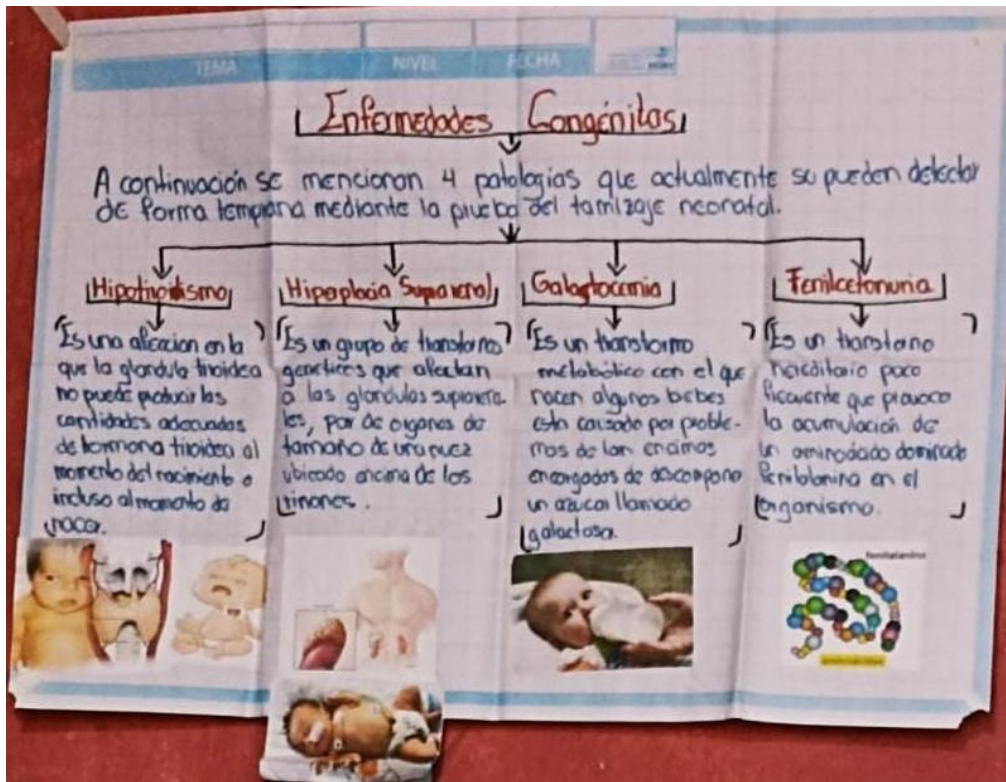 TEMA NIVEL FECHA
Enfermedades Congénitas
A continuación se mencionan 4 patologías que actualmente su pueden detectar
de forma temprana mediante la prueba del tamizaje neonatal.
Hipotiroidismo
Es una afeccion en la
que la glandula tiroidea
no puede producir las
cantidades adecuadas
de hormona tiroidea al
momento del nacimiento o
incluso al momento de
nacer.
Hiperplacia Suparenal
Es un grupo de transtornos
geneticos que afectan
a las glandulas suprarrena
les, par de organos de
tamaño de una nuez
ubicado encima de los
rinones.
Galactocemia
Es un transtormo
metabolico con el que
nacen algunos bebes
esta causado por proble-
mas de lan encimas
encargados de descompono
un azucar llamado
galactosa.
Fenilcetonuria
Es un transtano
hereditario poco
ficuente que provoca
la acumulación de
un aminodado dominado
feniblanina en el
organismo.
fenilalanina